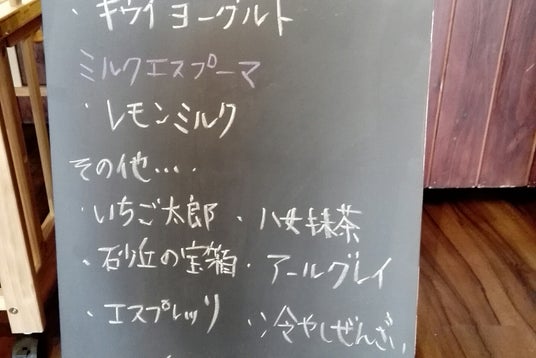 ・キウイヨーグルト
ミルクエスプーマ
・レモンミルク
その他・・・・
・いちご太郎 ・八女抹茶
・砂丘の宝箱 ・アールグレイ
・エスプレッソ ・冷やしぜんざい